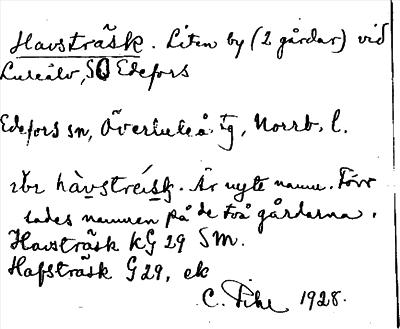 Havsträsk. Liten by (2 gårdar) vid
Luleälv, SO Edefors
Edefors sn, Överluleå tg, Norrb. l.
hàvstréisk. Är nyte namn. Förr
sades namnen på de två gårdarna.
Havsträsk KG 29 SM.
Hafsträsk G29, ek
C. Pihl 1928.